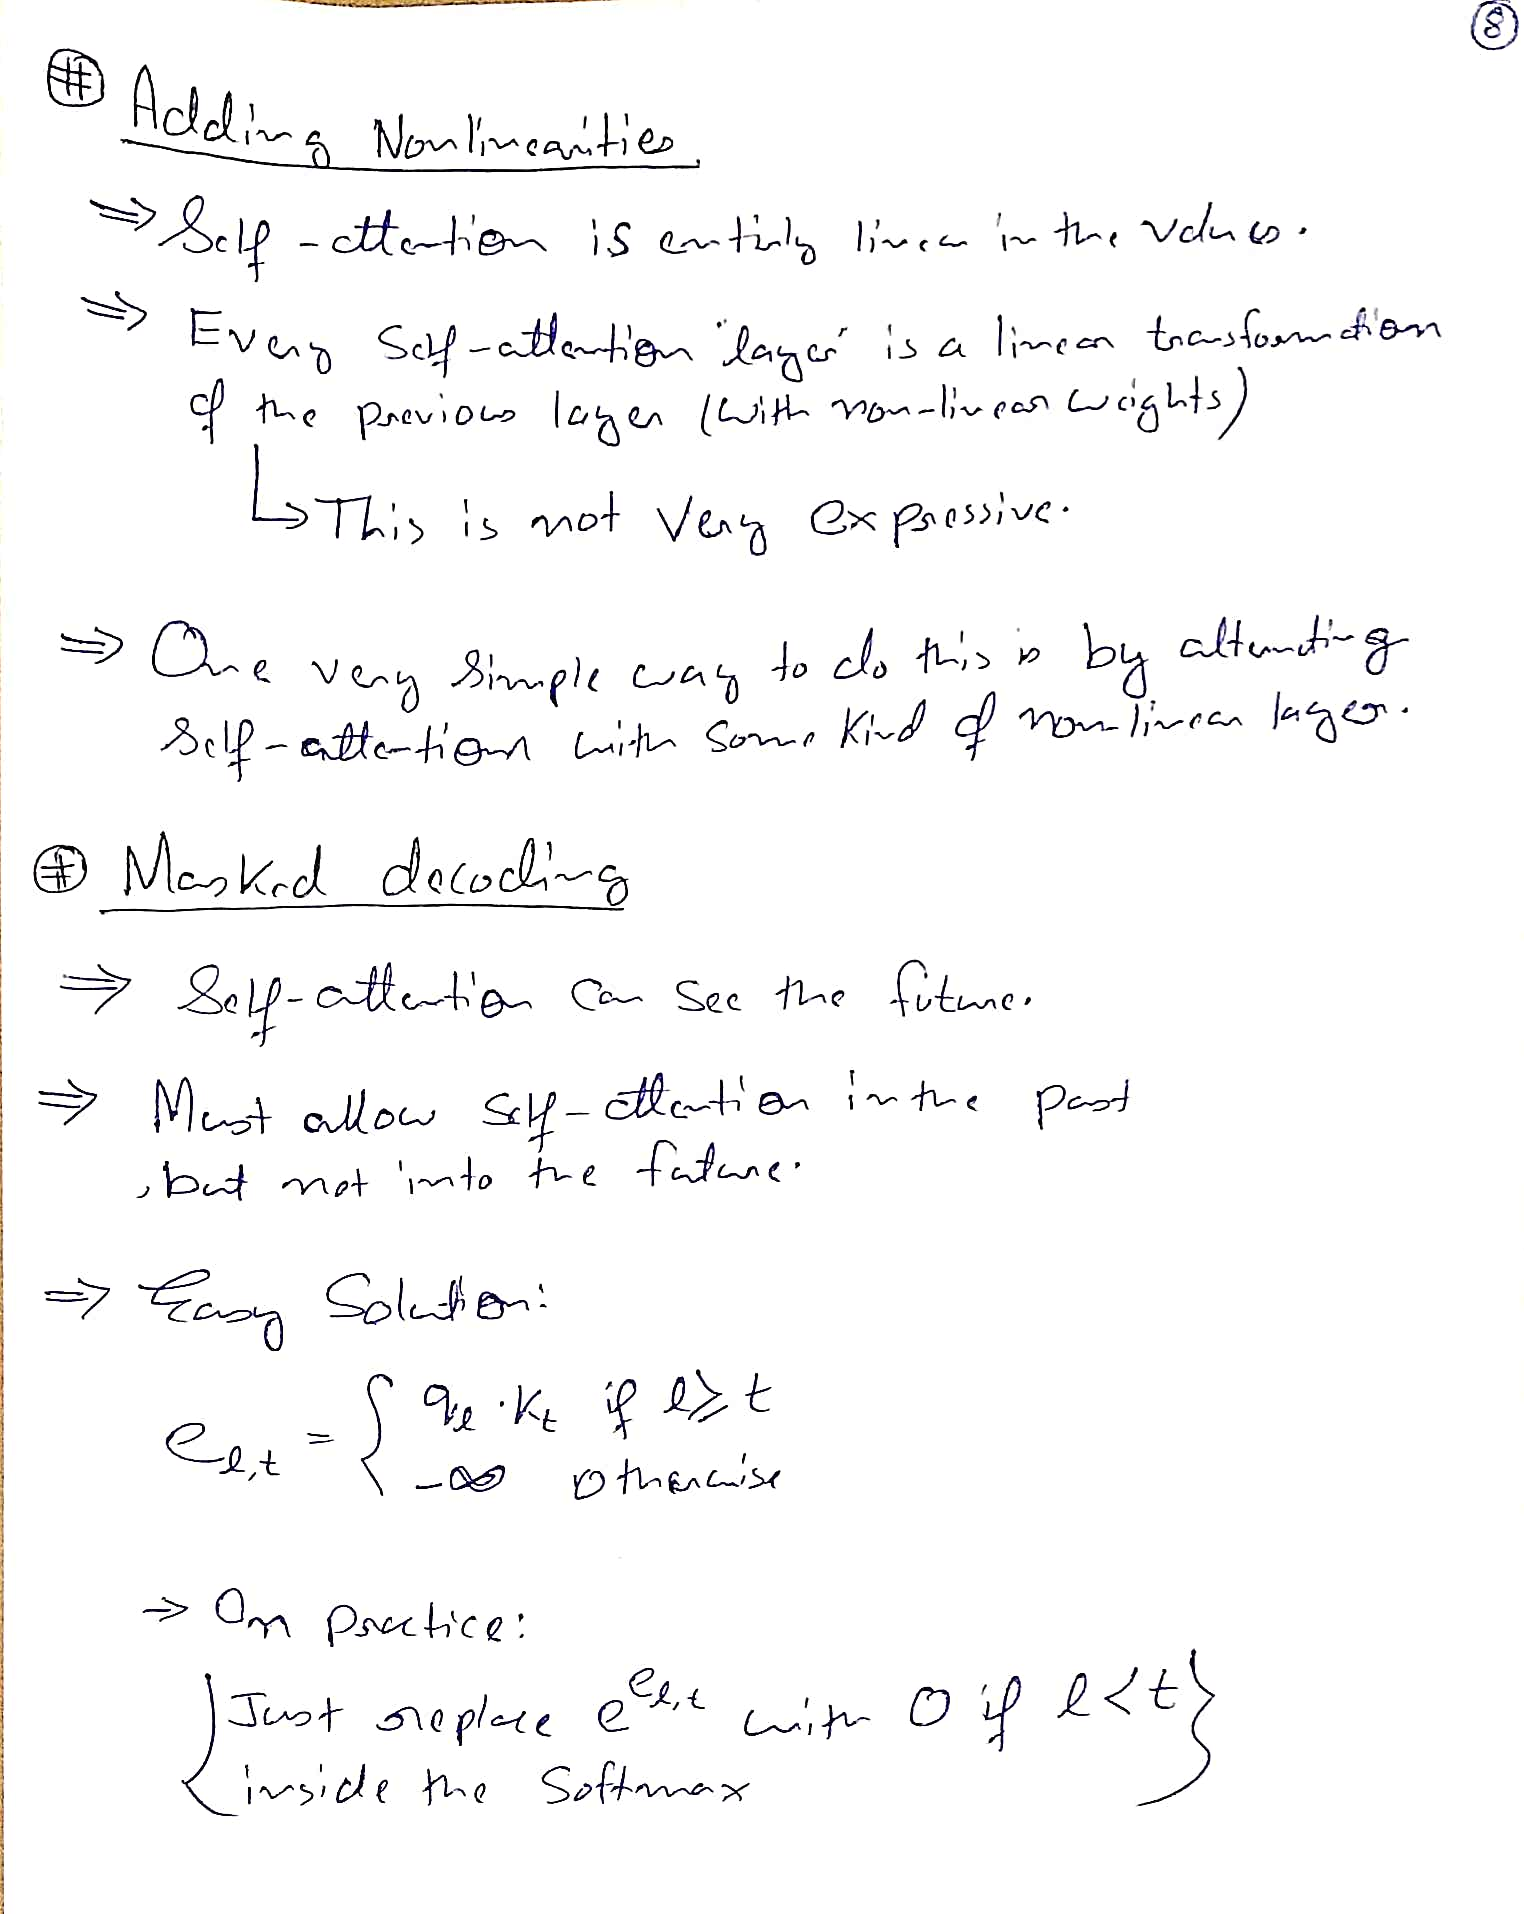 8
# Adding Nonlinearities
⇒ Self-attention is entirly linear in the values.
⇒ Every Self-attention "layer" is a linear transformation
of the previous layer (with non-linear weights)
↳ This is not very expressive.
⇒ One very simple way to do this is by alternating
self-attention with some kind of nonlinear layer.
# Masked decoding
⇒ Self-attention can see the future.
⇒ Must allow self-attention in the past
, but not into the future.
⇒ Easy Solution:
e_{l,t} = { q_l · k_t if l ≥ t
-∞ otherwise
⇒ On practice:
{ Just replace e^{e_{l,t}} with 0 if l < t }
inside the softmax